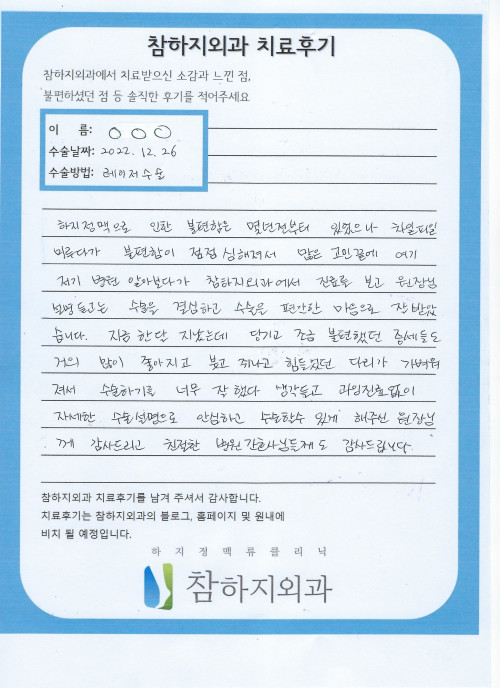 참하지외과 치료후기
참하지외과에서 치료받으신 소감과 느낀 점,
불편하셨던 점 등 솔직한 후기를 적어주세요
이 름: ○ ○ ○
수술날짜: 2022. 12. 26
수술방법: 레이저수술
하지정맥으로 인한 불편함은 몇년전부터 있었으나 차일피일
미루다가 불편함이 점점 심해져서 많은 고민끝에 여기
저기 병원 알아보다가 참하지외과에서 진료를 보고 원장님
듣고는 수술을 결심하고 수술을 편안한 마음으로 잘 받았
습니다. 지금 한달 지났는데 당기고 조금 불편했던 증세들도
거의 많이 좋아지고 붓고 쥐나고 힘들었던 다리가 가벼워
져서 수술하기를 너무 잘했다 생각들고 과잉진료없이
자세한 수술설명으로 안심하고 수술할수 있게 해주신 원장님
께 감사드리고 친절한 병원 간호사님들께도 감사드립니다.
참하지외과 치료후기를 남겨 주셔서 감사합니다.
치료후기는 참하지외과의 블로그, 홈페이지 및 원내에
비치 될 예정입니다.
하지정맥류클리닉
참하지외과